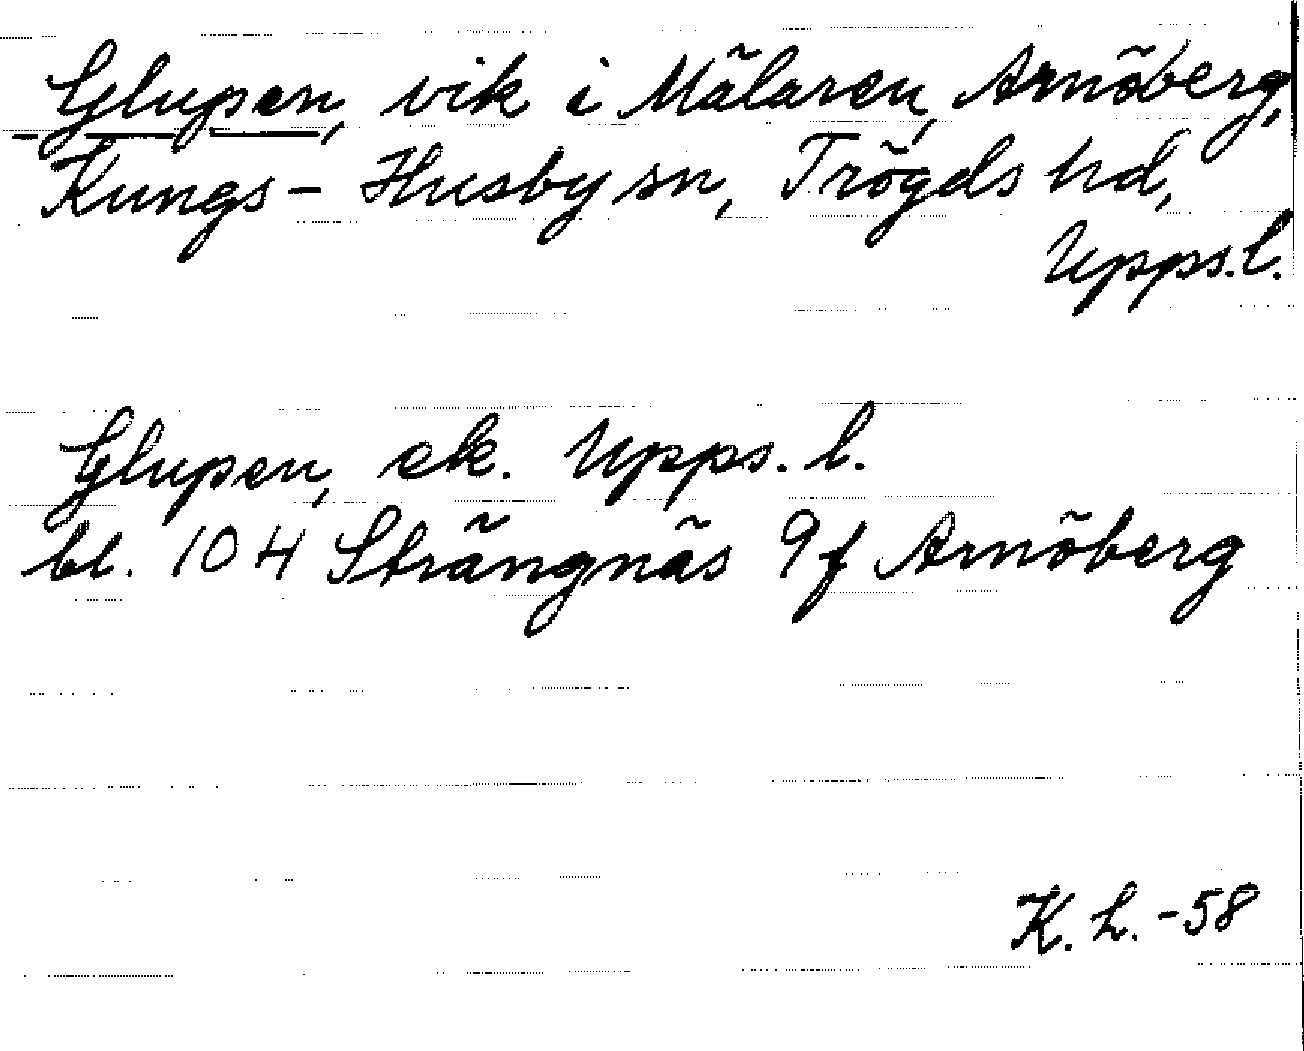 Glupen, vik i Mälaren, Arnöberg,
Kungs-Husby sn, Trögds hd,
Upps.l.
Glupen, ek. Upps. l.
bl. 104 Strängnäs 9f Arnöberg
K. L. -58